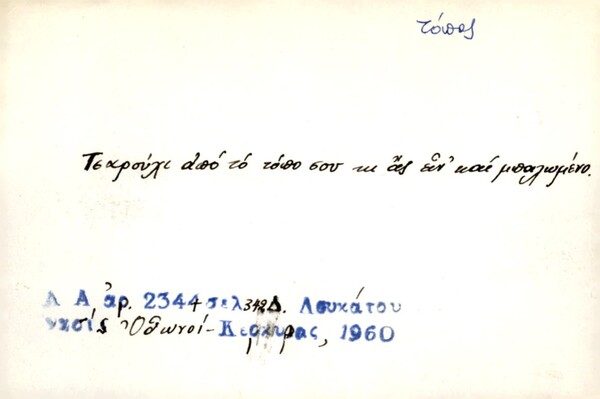 τόπος
Τσαρούχι ἀπό τό τόπο σου κι ἄς εἶν' καί μπαλωμένο.
Λ Α ἀρ. 2344 σελ. 342 Δ. Λουκάτου
νησίς Ὀθωνοί - Κερκυρας, 1960